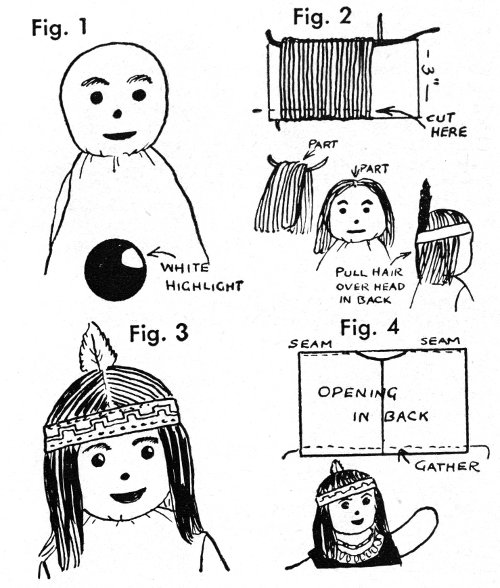 Fig. 1
WHITE
HIGHLIGHT
Fig. 2
3"
CUT
HERE
PART
PART
PULL HAIR
OVER HEAD
IN BACK
Fig. 3
Fig. 4
SEAM
SEAM
OPENING
IN BACK
GATHER